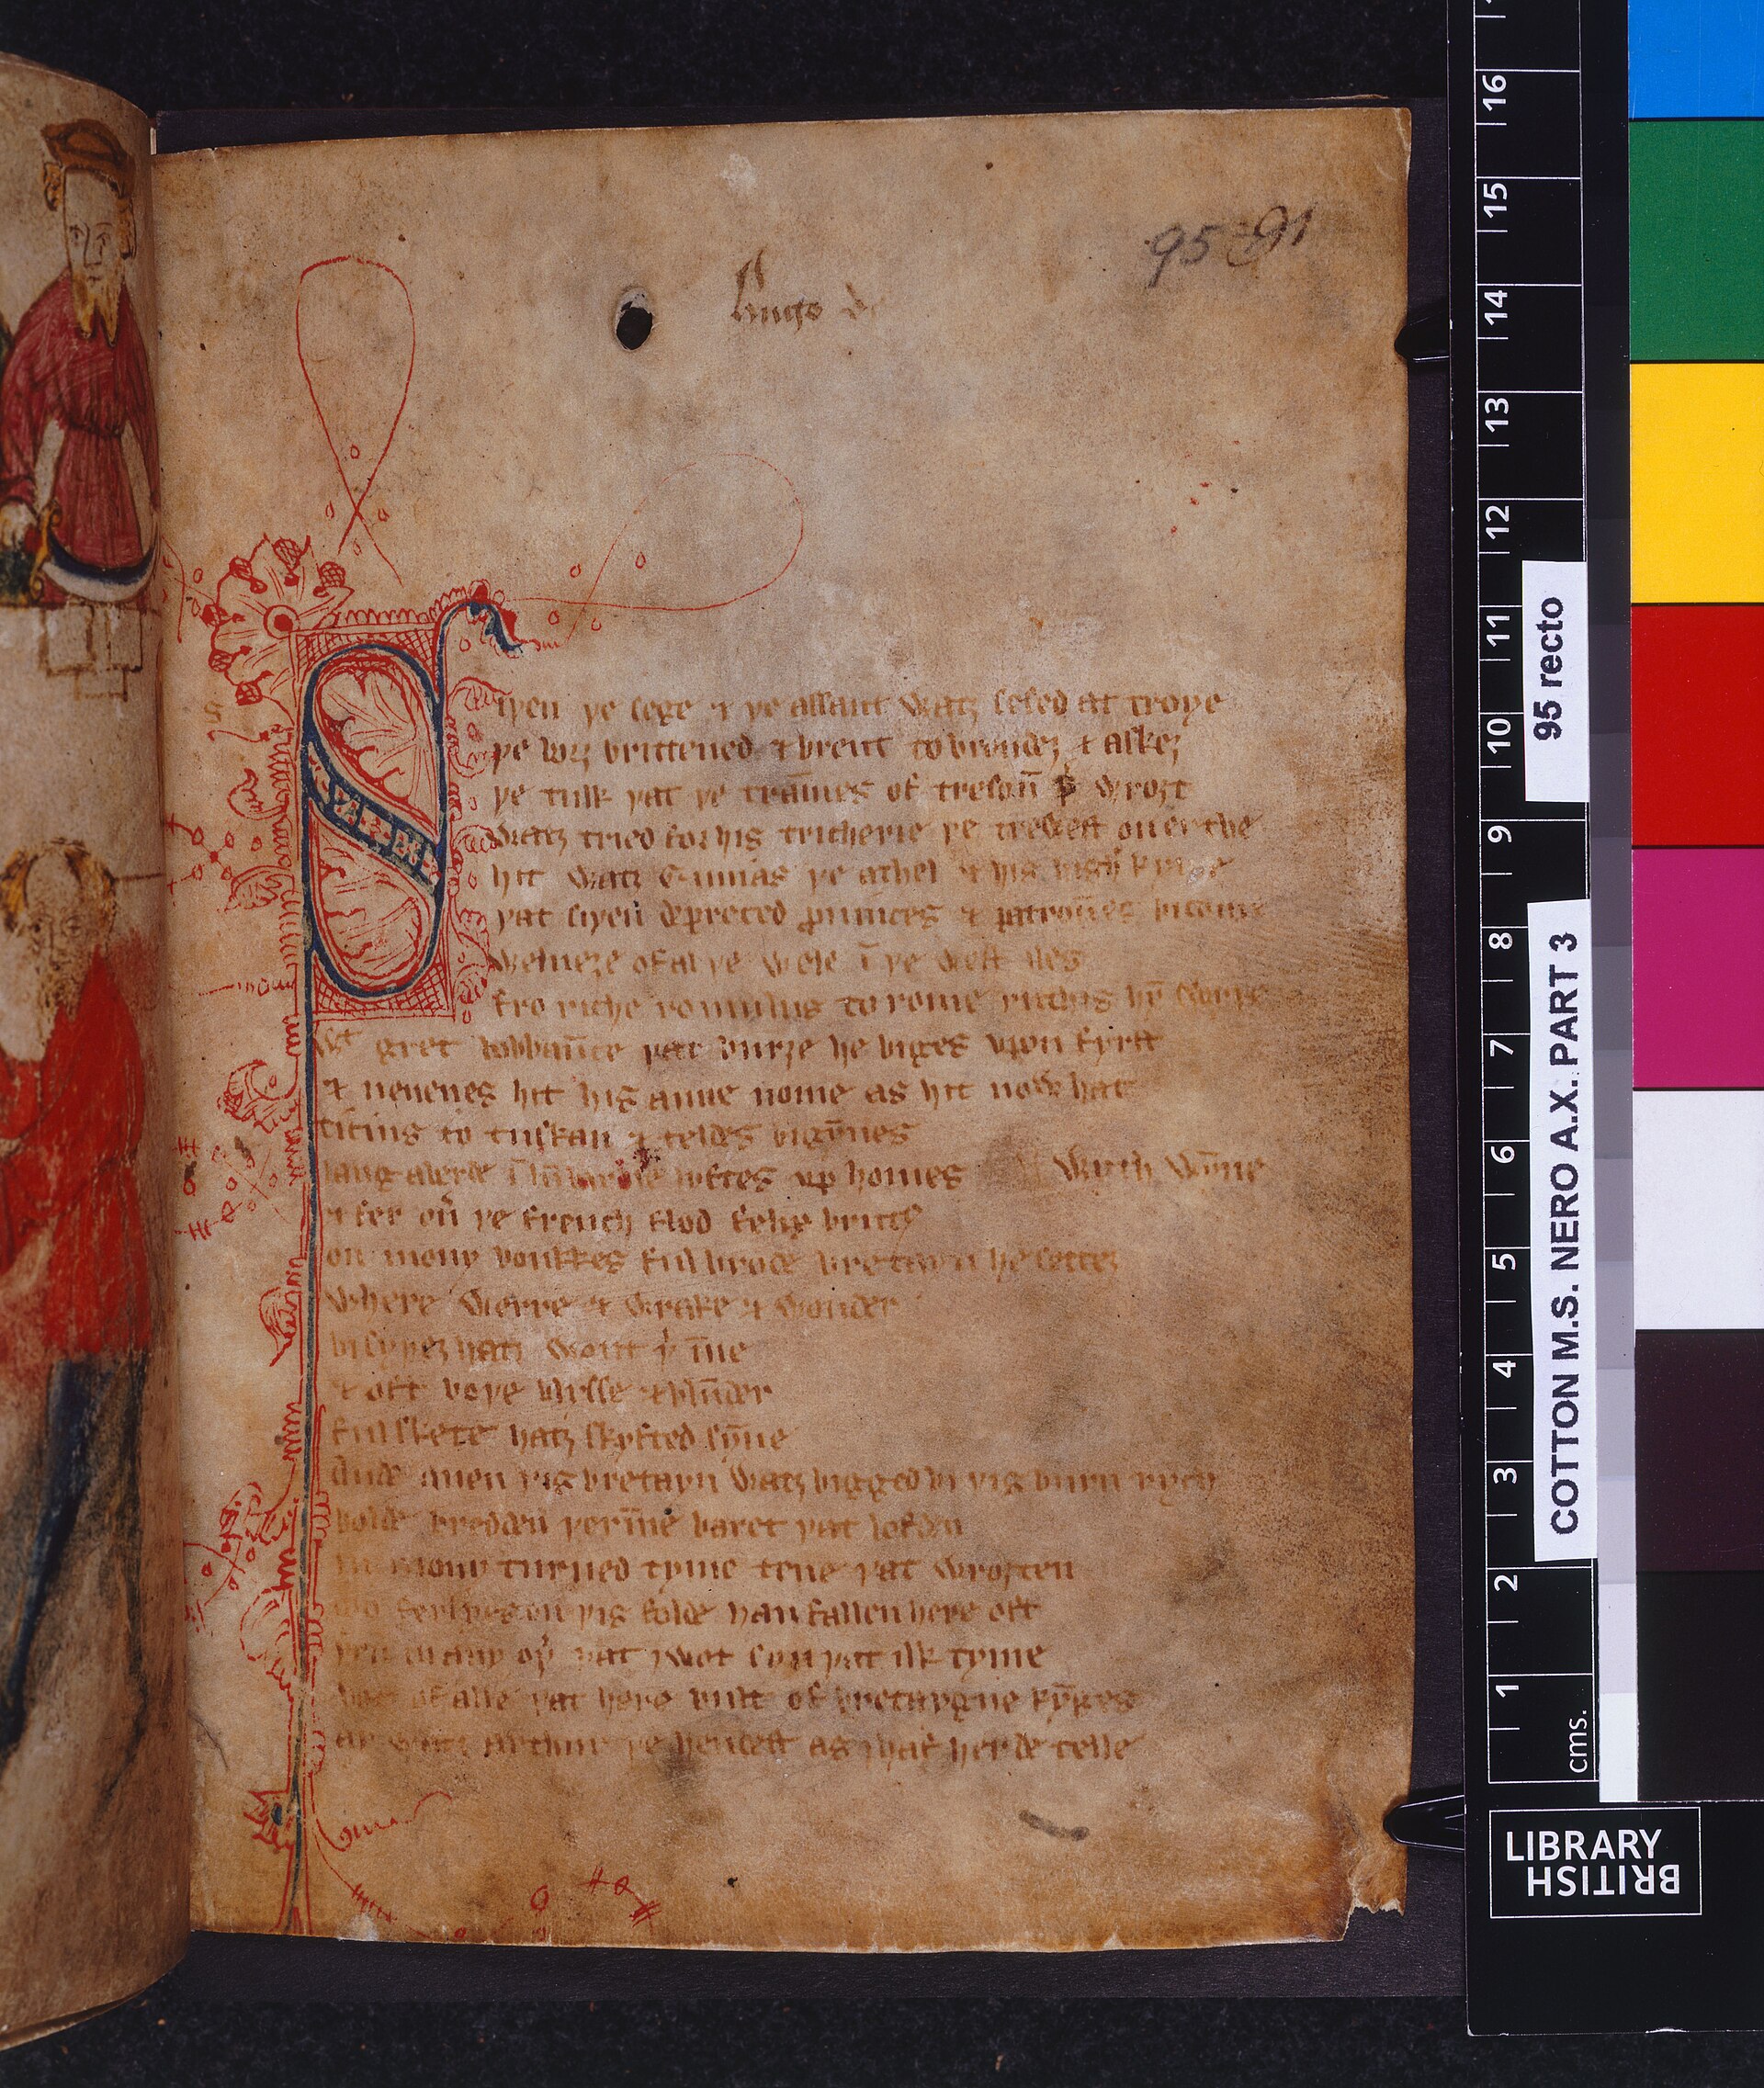 95 91
hugo d
Siþen þe sege & þe assaut watz sesed at troye
þe borȝ brittened & brent to brondeȝ & askez
þe tulk þat þe tram̄es of tresoun þ̵ wroȝt
watz tried for his tricherie þe trewest on erthe
hit watz Ennias þe athel & his highe kynde
þat siþen depreced prouinces & patrounes bicome
welneȝe of al þe wele ī þe west iles
fro riche romulus to rome ricchis hȳ swyþe
wt gret bobbaūce þat burȝe he biges vpon fyrst
& neuenes hit his aune nome as hit now hat
ticius to tuskan & teldes bigȳnes
langaberde ī lūbardie lyftes vp homes
wyth wȳne
& fer ou̾ þe french flod felix brut9
on mony bonkkes ful brode bretayn he settez
where werre & wrake & wonder
bi syþez hatz wont þ̾ īne
& oft boþe blysse & blūder
ful skete hatz skyfted sȳne
Ande quen þis bretayn watz bigged bi þis burn rych
bolde bredden þerīne baret þat lofden
in mony turned tyme tene þat wroȝten
mo ferlyes on þis folde han fallen here oft
þen in any oþ̾ þat I wot syn þat ilk tyme
bot of alle þat here bult of bretaygne kȳges
ay watz arthur þe hendest as I haf herde telle
95 recto
COTTON M.S. NERO A.X. PART 3
16
15
14
13
12
11
10
9
8
7
6
5
4
3
2
1
cms.
LIBRARY
BRITISH